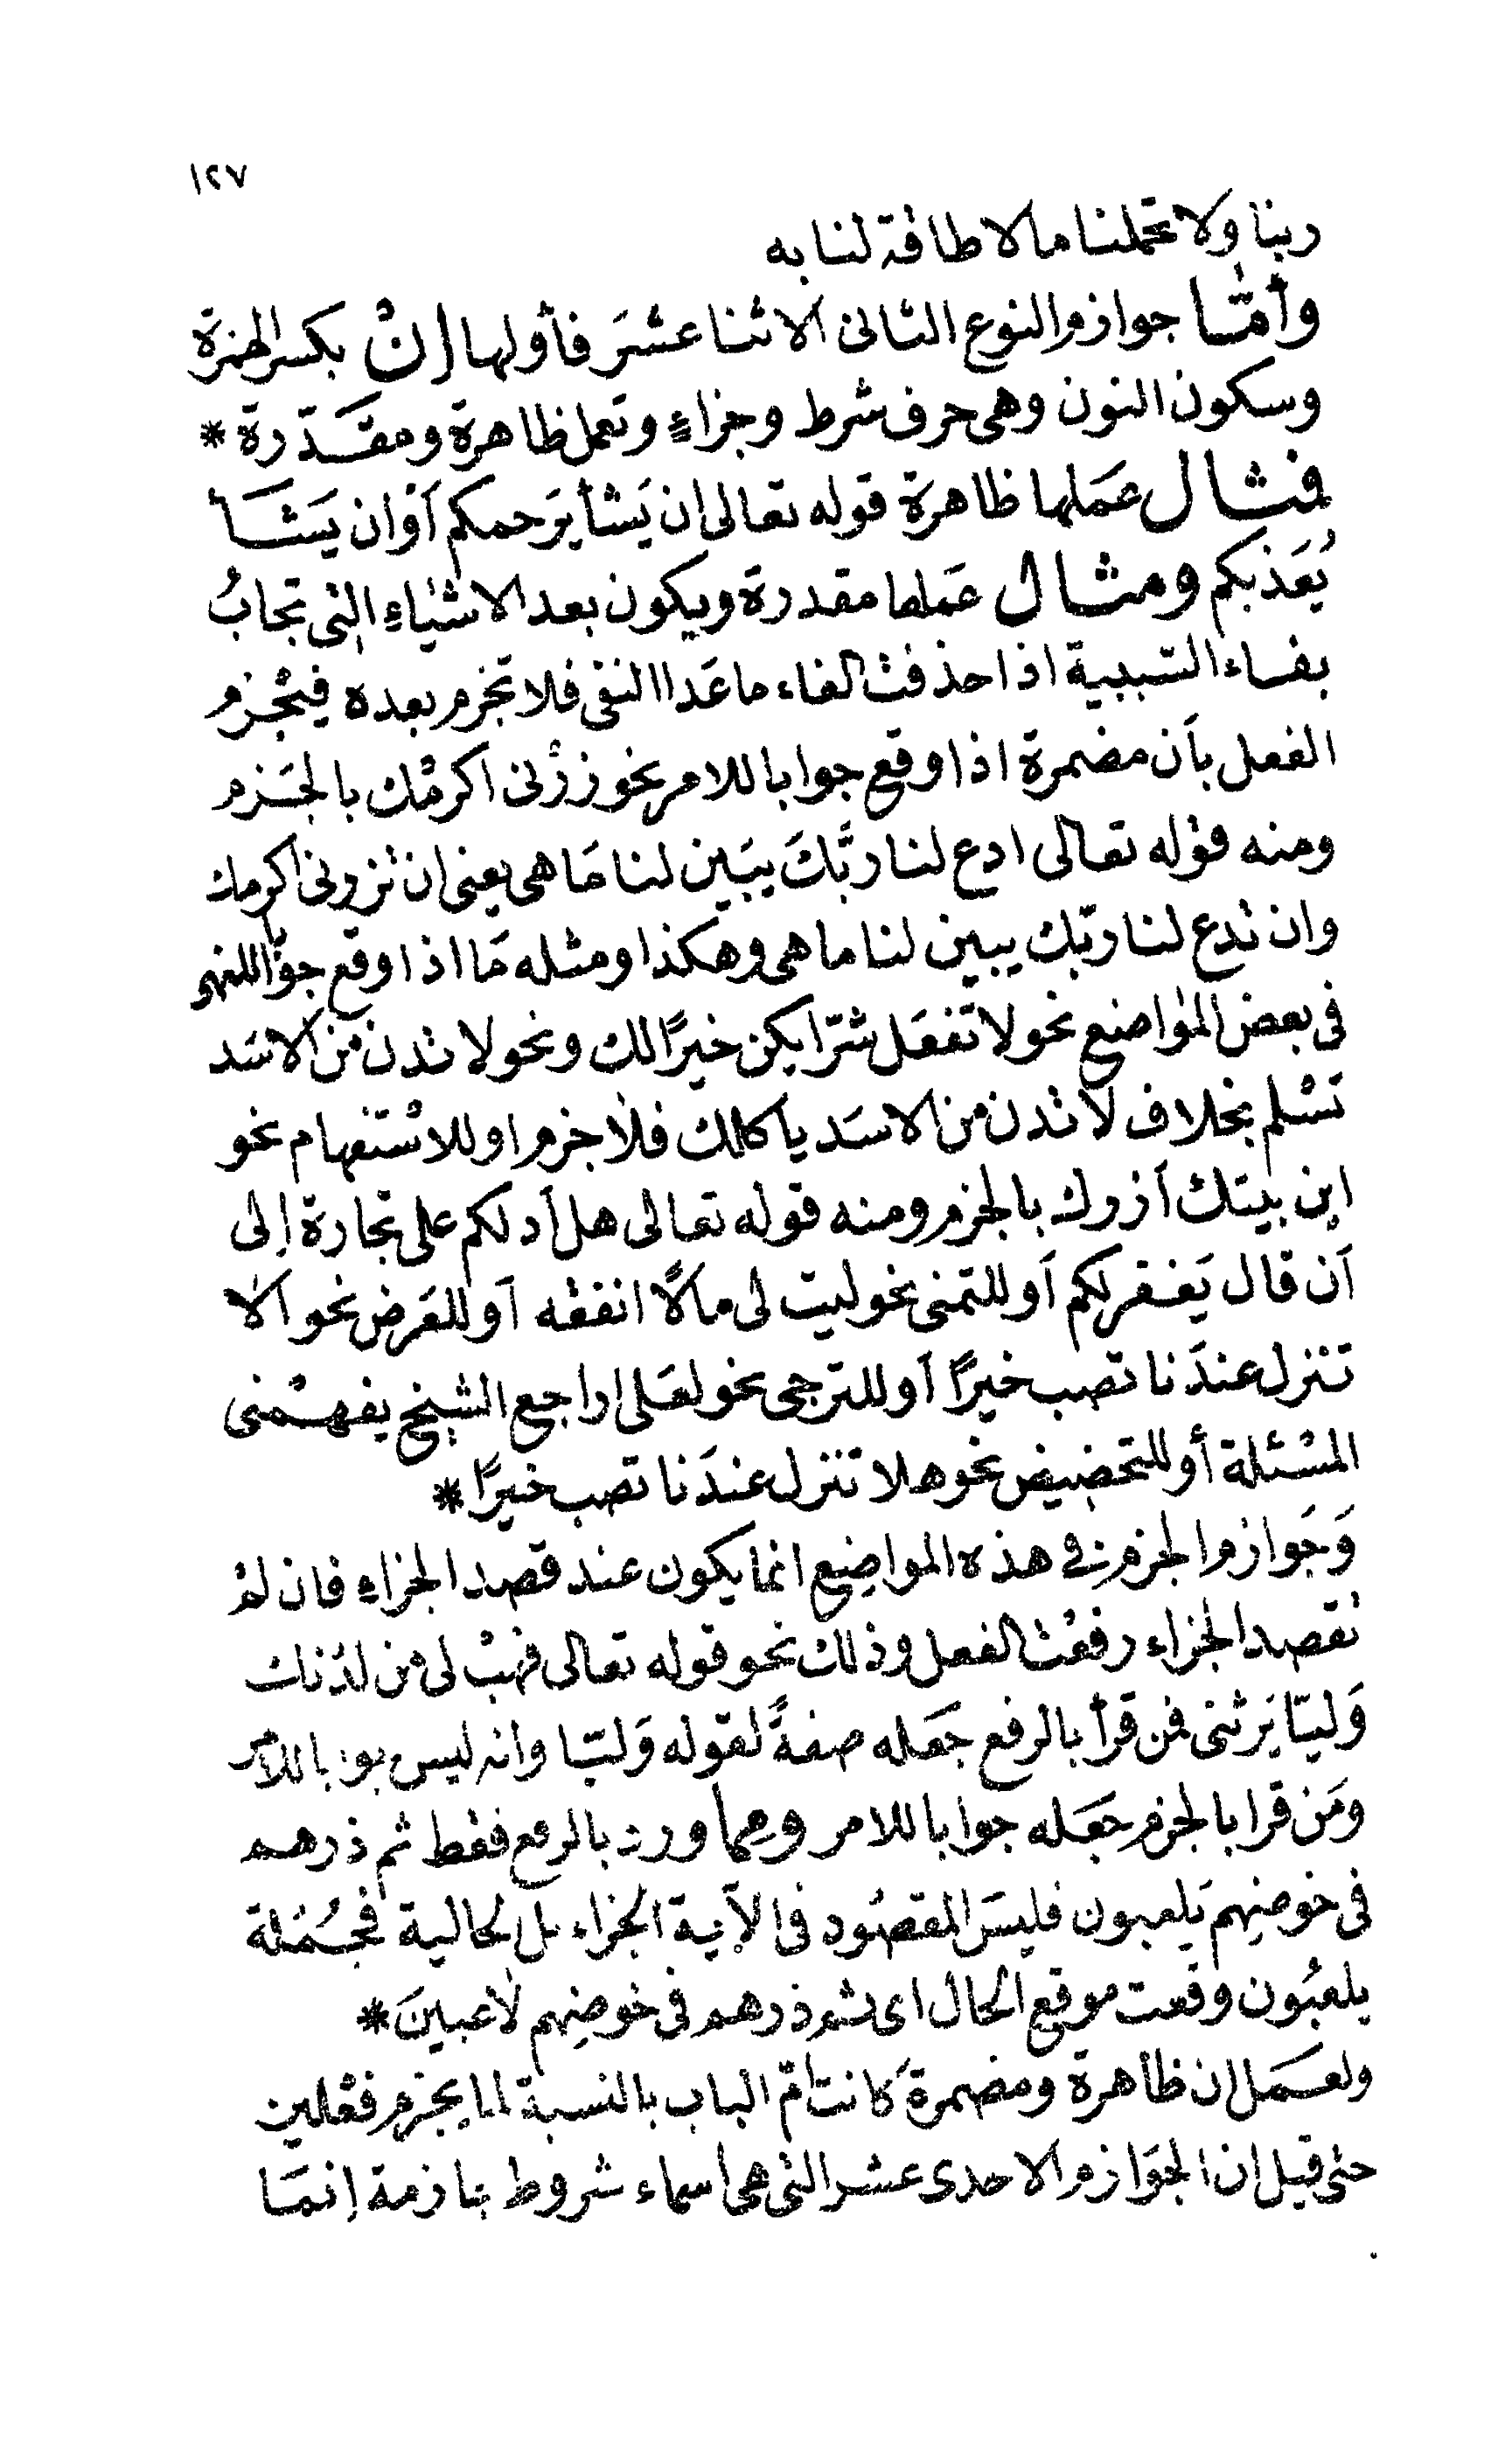 ١٢٧
ربنا ولا تحملنا ما لا طاقة لنا به
وأمّا جوازم النوع الثانى الاثنا عشَر فأولها إنْ بكسر الهمزة
وسكون النون وهى حرف شرط وجزاءٍ وتعمل ظاهرة ومقدّرة *
فمثال عمَلها ظاهرة قوله تعالى ان يَشأ يَرحمكم أوْ ان يَشَأ
يُعَذبكم ومثال عَملها مقدرة ويكون بعد الاشيٰاءِ التى تجابُ
بفاء السّببية اذا حذفت الفاء ما عَدا النفى فلا تجزم بعده فيُجْزم
الفعل بأن مضمرة اذا وقع جوابا للامر نحو زرْنى اكرمْك بالجَزم
ومنه قوْله تعالى ادع لنا ربَّكَ يبَين لنا مَا هى يعنى ان تزرونى اكرمك
وان تدع لنا ربّك يبين لنا ما هى وهكذا ومثله مَا اذا وقع جوّابا للنهى
فى بعض الموٰاضع نحو لا تفعَل شرّا يكن خيرًا لك ونحو لا تدن من الاسَد
تسْلم بخلاف لا تدن من الاسَد ياكلك فلا جزم او للاسْتفهام نحو
اين بيتك أزورك بالجزم ومنه قوله تعالى هل أدلكم على تجارة إلى
أن قال يَغفر لكم أو للتمنى نحو ليت لى مالاً انفقه أو للعَرض نحو ألا
تنزل عندَنا تصب خيرًا أو للترجى نحو لعَلى اراجع الشيخ يفهمْنى
المسْئلة أو للتحضيض نحو هلا تنزل عندَنا تصب خيرًا *
وَجَوازم الجزم فى هذه المواضِع انما يكون عند قصد الجزاءِ فان لمْ
تقصد الجزاء رفعْت الفعل وذلك نحو قوله تعالى فهبْ لى من لدُنك
وَليّا يَرثنى فمن قرأ بالرفع جَعَله صفةً لقوله وَليّا وانه ليس جوابا للأمر
ومَن قرا بالجزم جَعَله جوابا للامر ومما ورد بالرفع فقط ثم ذرهم
فى خوضِهم يَلعبون فليسَ المقصُود فى الآية الجزاء بل الحالية فجُمْلة
يلعبُون وقعت موقع الحال اى ثم ذرهم فى خوضِهم لاعبينَ *
ولعمَل ان ظاهرة ومضمرة كَانت أمّ الباب بالنسبة لما يجزم فعْلين
حتى قيل ان الجوَازم الاحدى عشر التى هى أسماء شروط جازمة إنمَا